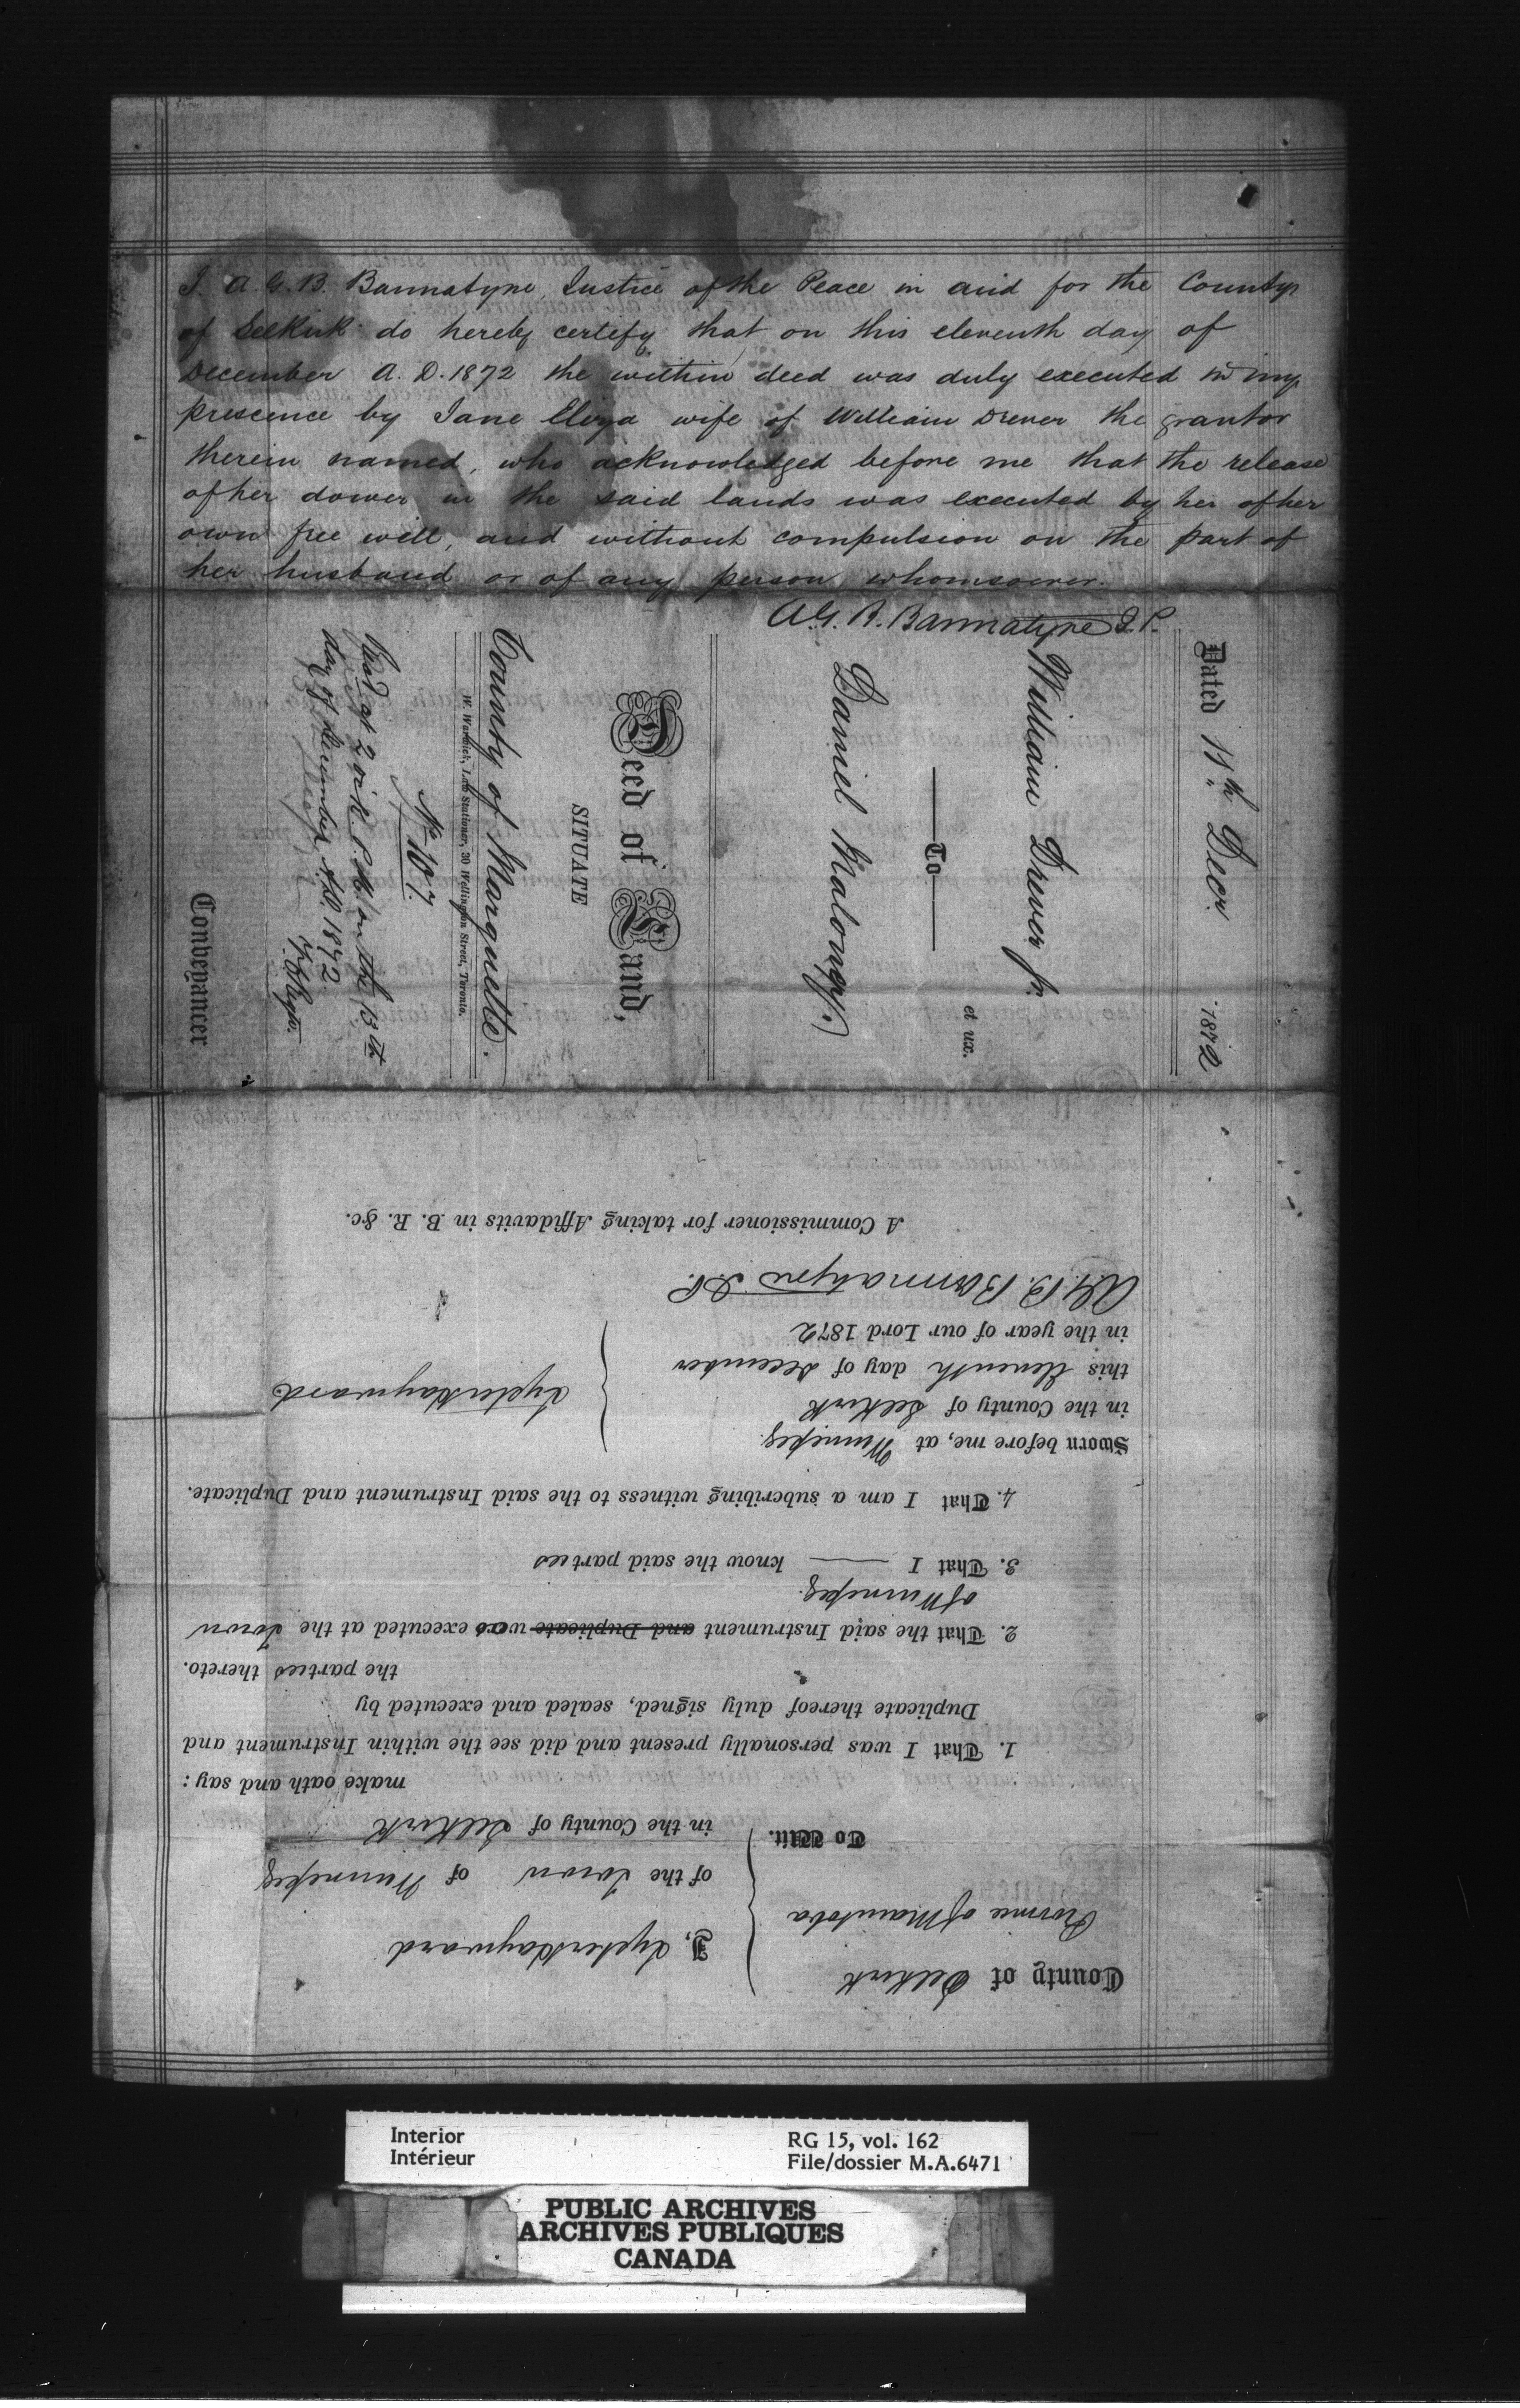 I. A. G. B. Bannatyne, Justice of the Peace in and for the County
of Selkirk do hereby certify that on this eleventh day of
December A. D. 1872 the within deed was duly executed in my
prescence by Jane Eliza wife of William Drever the grantor
therein named, who acknowledged before me that the release
of her dower in the said lands was executed by her of her
own free will, and without compulsion on the part of
her husband or of any person whomsoever.
A.G.B. Bannatyne J.P.
Dated 11th Decr. 1872
William Drever Jr.
et ux.
To
Daniel Maloney.
Deed of Land,
SITUATE
County of Marquette.
W. Warwick, Law Stationer, 30 Wellington Street, Toronto.
No 107
Recd at 2 o'clk P.M. on the 13th
day of December A.D. 1872
Conveyancer
County of Selkirk
Province of Manitoba
To Wit.
I, Hayward
of the Town of Winnipeg
in the County of Selkirk
make oath and say:
1. That I was personally present and did see the within Instrument and
Duplicate thereof duly signed, sealed and executed by
the parties thereto.
2. That the said Instrument and Duplicate was executed at the Town
of Winnipeg.
3. That I know the said parties
4. That I am a subcribing witness to the said Instrument and Duplicate.
Sworn before me, at Winnipeg.
in the County of Selkirk
this Eleventh day of December
in the year of our Lord 1872
Hayward
A.G.B. Bannatyne J.P.
A Commissioner for taking Affidavits in B. R. &c.
Interior
Intérieur
RG 15, vol. 162
File/dossier M.A.6471
PUBLIC ARCHIVES
ARCHIVES PUBLIQUES
CANADA